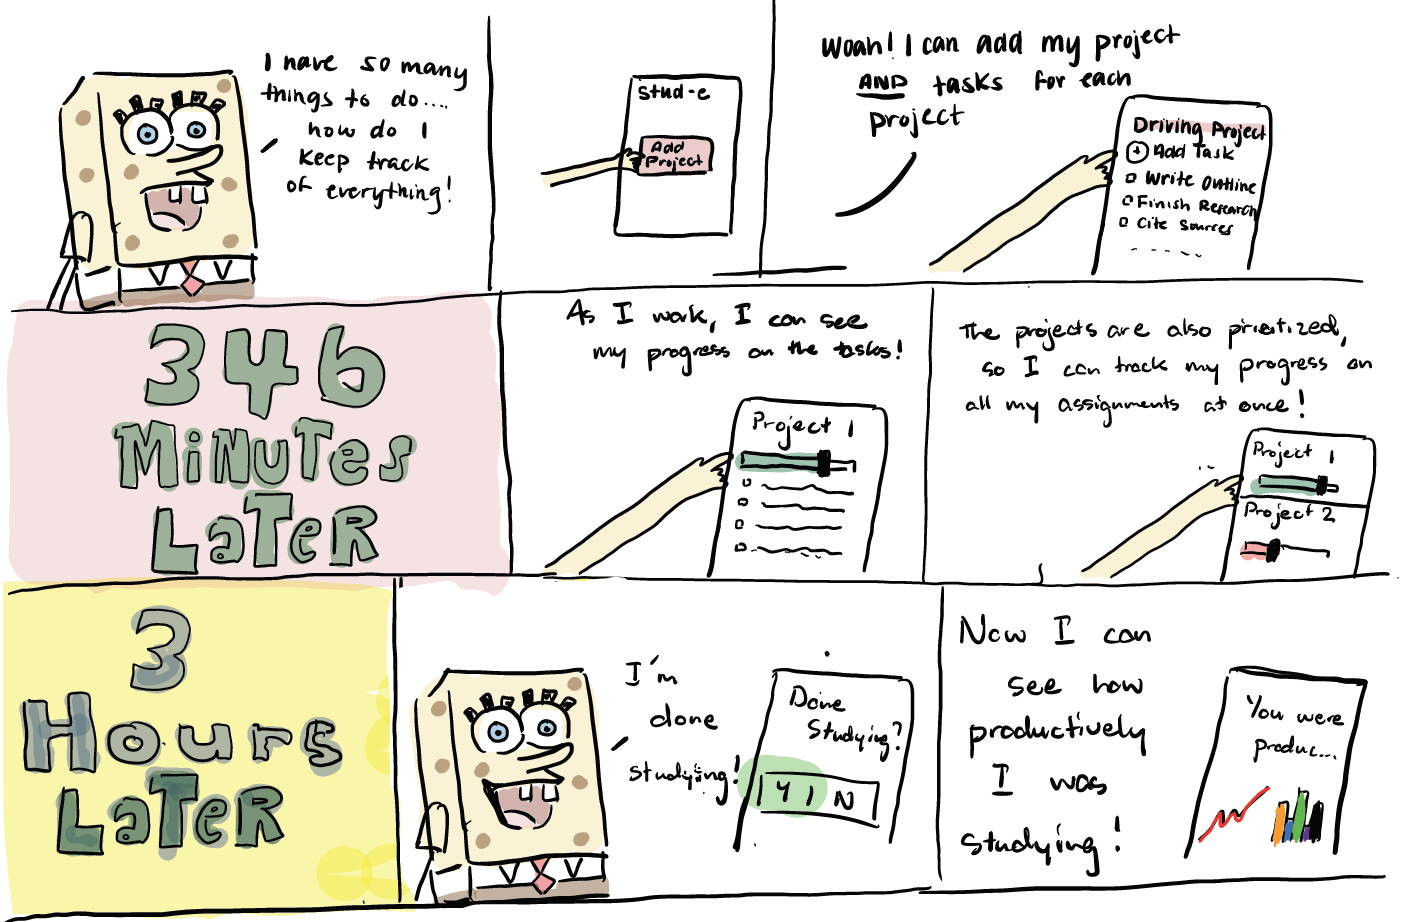 I have so many
things to do....
how do I
keep track
of everything!
Stud-e
Add
Project
Woah! I can add my project
AND tasks for each
project
Driving Project
+ Add Task
Write Outline
Finish Research
Cite Sources
346
Minutes
Later
As I work, I can see
my progress on the tasks!
Project 1
The projects are also prioritized,
so I can track my progress on
all my assignments at once!
Project 1
Project 2
3
Hours
Later
I'm
done
studying!
Done
Studying?
Y | N
Now I can
see how
productively
I was
studying!
You were
produc...